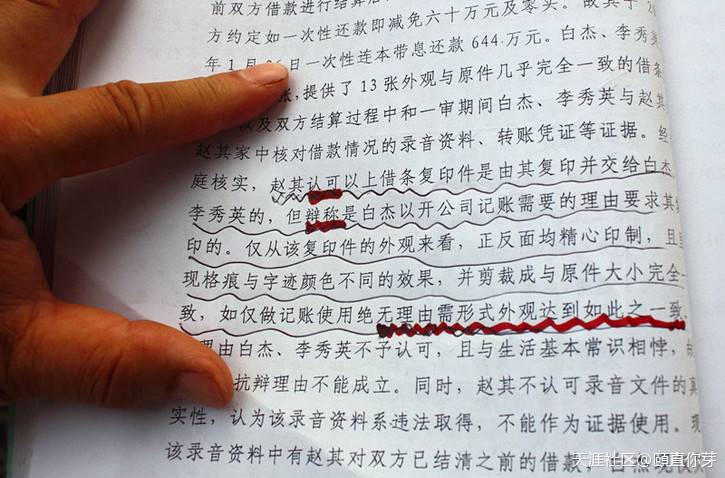 前双方借款进行结算后
方约定如一次性还款即减免六十万元及零头。故其于2
年1月26日一次性连本带息还款644.万元。白杰、李秀英
张,提供了13张外观与原件几乎完全一致的借条
以及双方结算过程中和一审期间白杰、李秀英与赵其
赵其家中核对借款情况的录音资料、转账凭证等证据。经
庭核实,赵其认可以上借条复印件是由其复印并交给白杰
李秀英的,但辩称是白杰以开公司记账需要的理由要求其
印的。仅从该复印件的外观来看,正反面均精心印制,且
现格痕与字迹颜色不同的效果,并剪裁成与原件大小完全一
致,如仅做记账使用绝无理由需形式外观达到如此之一致。
理由白杰、李秀英不予认可,且与生活基本常识相悖,故
抗辩理由不能成立。同时,赵其不认可录音文件的真
实性,认为该录音资料系违法取得,不能作为证据使用。现
该录音资料中有赵其对双方已结清之前的借款,
天涯社区@颐直你芽